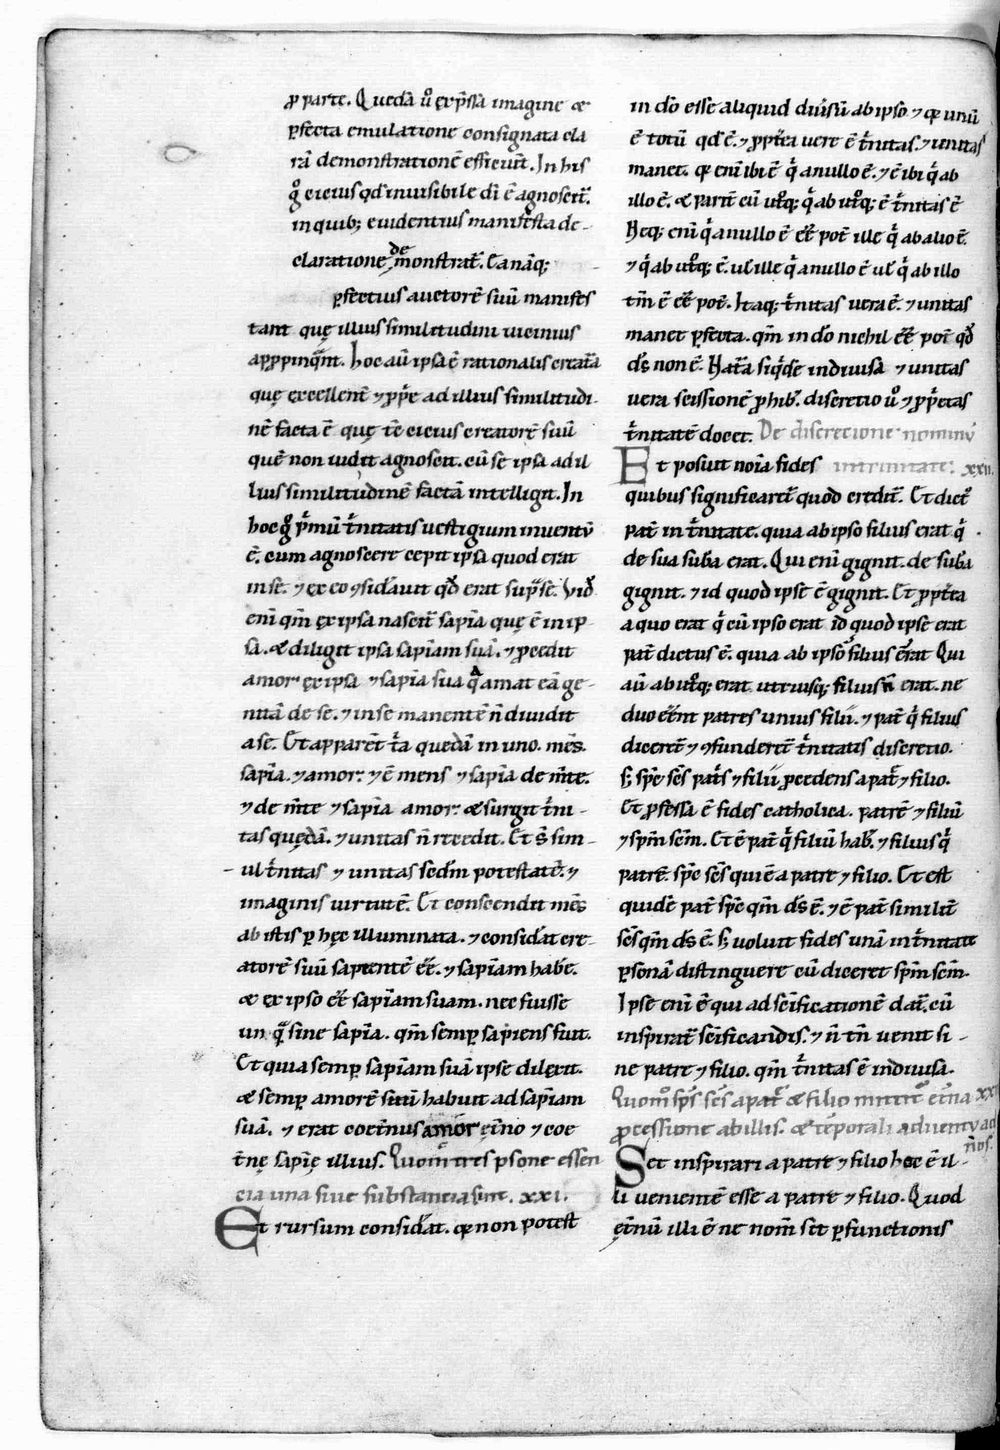 ꝓ parte. Quedā ū exp̄ssa imagine &
ꝑfecta emulatione consignata cla
rā demonstrationē efficiunt. In his
g̊ citius qd̄ inuisibile dī ē agnoscit̄.
in quib; euidentius manifesta de-
claratione demonstrat̄. Ea nāq;
ꝑfectius auctorē suū manifes
tant quę illius similitudini uicinius
aꝓpinq̄nt. hoc aū ipsa ē rationalis creatā
quę excellent̄ ⁊ ꝓp̄e ad illius similitudi
nē facta ē quę tē citius creatorē suū
quē non uidit agnoscit. cū se ipsa ad il
lius similitudinē factā intelligit. In
hoc g̊ p̄mū t̄nitatis uestigium inuentū
ē. cum agnoscere cepit ipsa quod erat
in se. ⁊ ex eo ꝯsid̄auit qd̄ erat sup̄ se. Vid̄
enī qm̄ ex ipsa nascit̄ sapīa quę ē in ip-
sa. & diligit ipsa sapīam suā. ⁊ ꝓcedit
amor ex ipsa ⁊ sapīa sua q̄ amat eā ge-
nitā de se. ⁊ in se manentē n̄ diuidit
a se. Et apparēt t̄a quedā in uno. mēs.
sapīa. ⁊ amor. ⁊ ē mens ⁊ sapīa de m̄te.
⁊ de m̄te ⁊ sapīa amor. & surgit t̄ni-
tas quędā. ⁊ unitas n̄ recedit. Et s̄ sim-
ul t̄nitas ⁊ unitas scdm̄ potestatē. ⁊
imaginis uirtutē. Et conscendit mēs
ab istis ꝑ hęc illuminata. ⁊ consid̄at cre-
atorē suū sapientē eē. ⁊ sapīam habe.
& ex ipso eē sapīam suam. nec fuisse
un q̄ sine sapīa. qm̄ semꝑ sapiens fuit.
Et quia semꝑ sapīam suā ipse dilexit.
& semꝑ amorē suū habuit ad sapīam
suā. ⁊ erat coet̄nus amor et̄no ⁊ coe
t̄nę sapīę illius. Quom̄ tres ꝑsone essen
cia una siue substancia sint. xxi.
Et rursum consid̄at. qꝫ non potest
in dō esse aliquid diuisū ab ipso ⁊ qꝫ unū
ē totū qd̄ ē. ⁊ ꝓpt̄ea uere ē t̄nitas. ⁊ unitas
manet. qꝫ enī ibi ē q̄ a nullo ē. ⁊ ē ibi q̄ ab
illo ē. & parit̄ cū ut̄q; q̄ ab ut̄q; ē t̄nitas ē
Neq; enī q̄ a nullo ē eē pot̄ ille q̄ ab alio ē.
⁊ q̄ ab ut̄q; ē. ul̄ ille q̄ a nullo ē ul̄ q̄ ab illo
tm̄ ē eē pot̄. Itaq; t̄nitas uera ē. ⁊ unitas
manet ꝑfecta. qm̄ in dō nichil eē pot̄ qd̄
ds̄ non ē. Nat̄a siq̄de indiuisa ⁊ unitas
uera scissionē ꝓhib̄. discretio ū ⁊ ꝓp̄etas
t̄nitatē docet. De discrecione nominū
Et posuit noīa fides in trinitate: xxii.
quibus significaret̄ quod credit̄. Et dict̄
pat̄ in t̄nitate. quia ab ipso filius erat q̄
de sua subā erat. Qui enī gignit. de subā
gignit. ⁊ id quod ipse ē gignit. Et ꝓpt̄ea
a quo erat q̄ cū ipso erat id quod ipse erat
pat̄ dictus ē. quia ab ipso filius erat Qui
aū ab ut̄q; erat utriusq; filius n̄ erat. ne
duo eēnt patres unius filii. ⁊ pat̄ q̄ filius
diceret̄ ⁊ ꝯfunderet̄ t̄nitatis discretio.
S; sp̄c sc̄s pat̄s ⁊ filii ꝓcedens a pat̄ ⁊ filio.
Et ꝓfessa ē fides catholica. patrē ⁊ filiū
⁊ sp̄m sc̄m. Et ē pat̄ q̄ filiū hab. ⁊ filius q̄
patrē. sp̄c sc̄s qui ē a patre ⁊ filio. Et est
quidē pat̄ sp̄c qm̄ ds̄ ē. ⁊ ē pat̄ similit̄
sc̄s qm̄ ds̄ ē. S; uoluit fides unā in t̄nitate
ꝑsonā distinguere cū diceret sp̄m sc̄m.
Ipse enī ē qui ad scīficationē dat̄. cū
inspirat̄ scīficandis. ⁊ n̄ tn̄ uenit si-
ne patre ⁊ filio. qm̄ t̄nitas ē indiuisa.
Quom̄ sp̄s sc̄s a pat̄ & filio mittit̄ et̄na
ꝓcessione ab illis. & tēporali aduentu ad
n̄os.
Set inspirari a patre ⁊ filio hoc ē il-
li uenientē esse a patre ⁊ filio. Quod
et̄nū illi ē ne nom̄ sit ꝑfunctionis